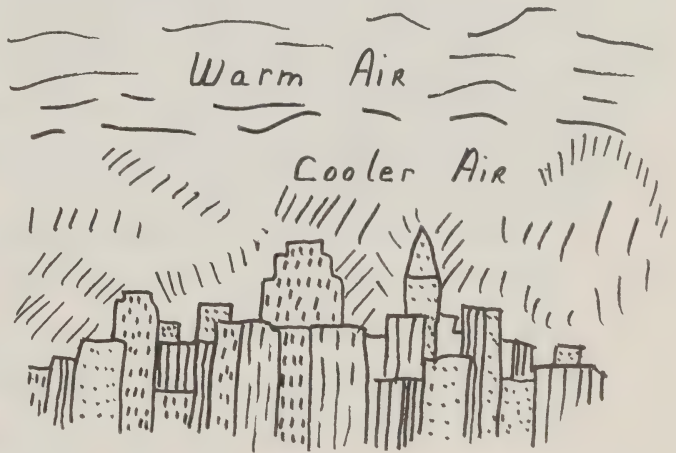 Warm Air
Cooler Air